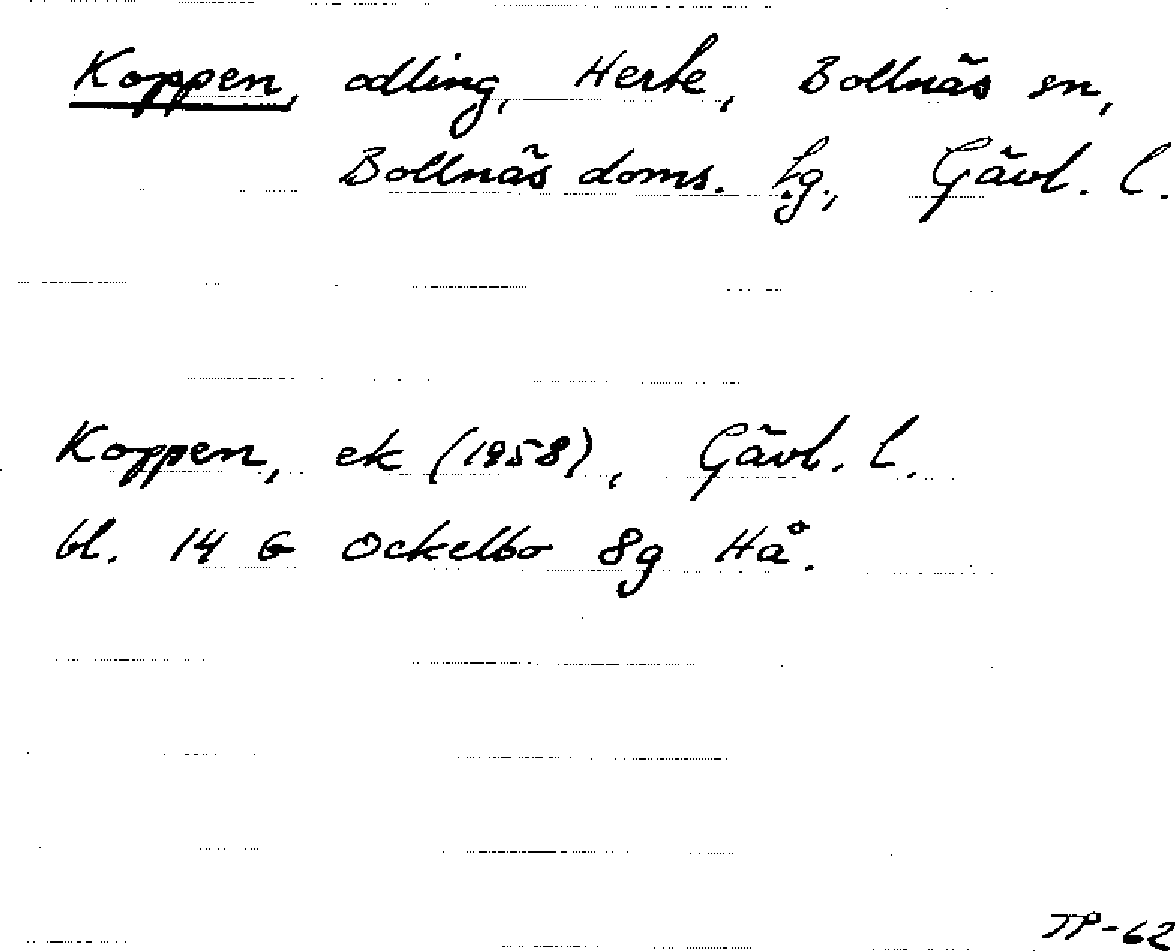 Koppen, odling, Herte, Bollnäs sn,
Bollnäs doms. tg., Gävl. l.
Koppen, ek (1958), Gävl. l.
bl. 14 G Ockelbo 8g Hå.
JP-62